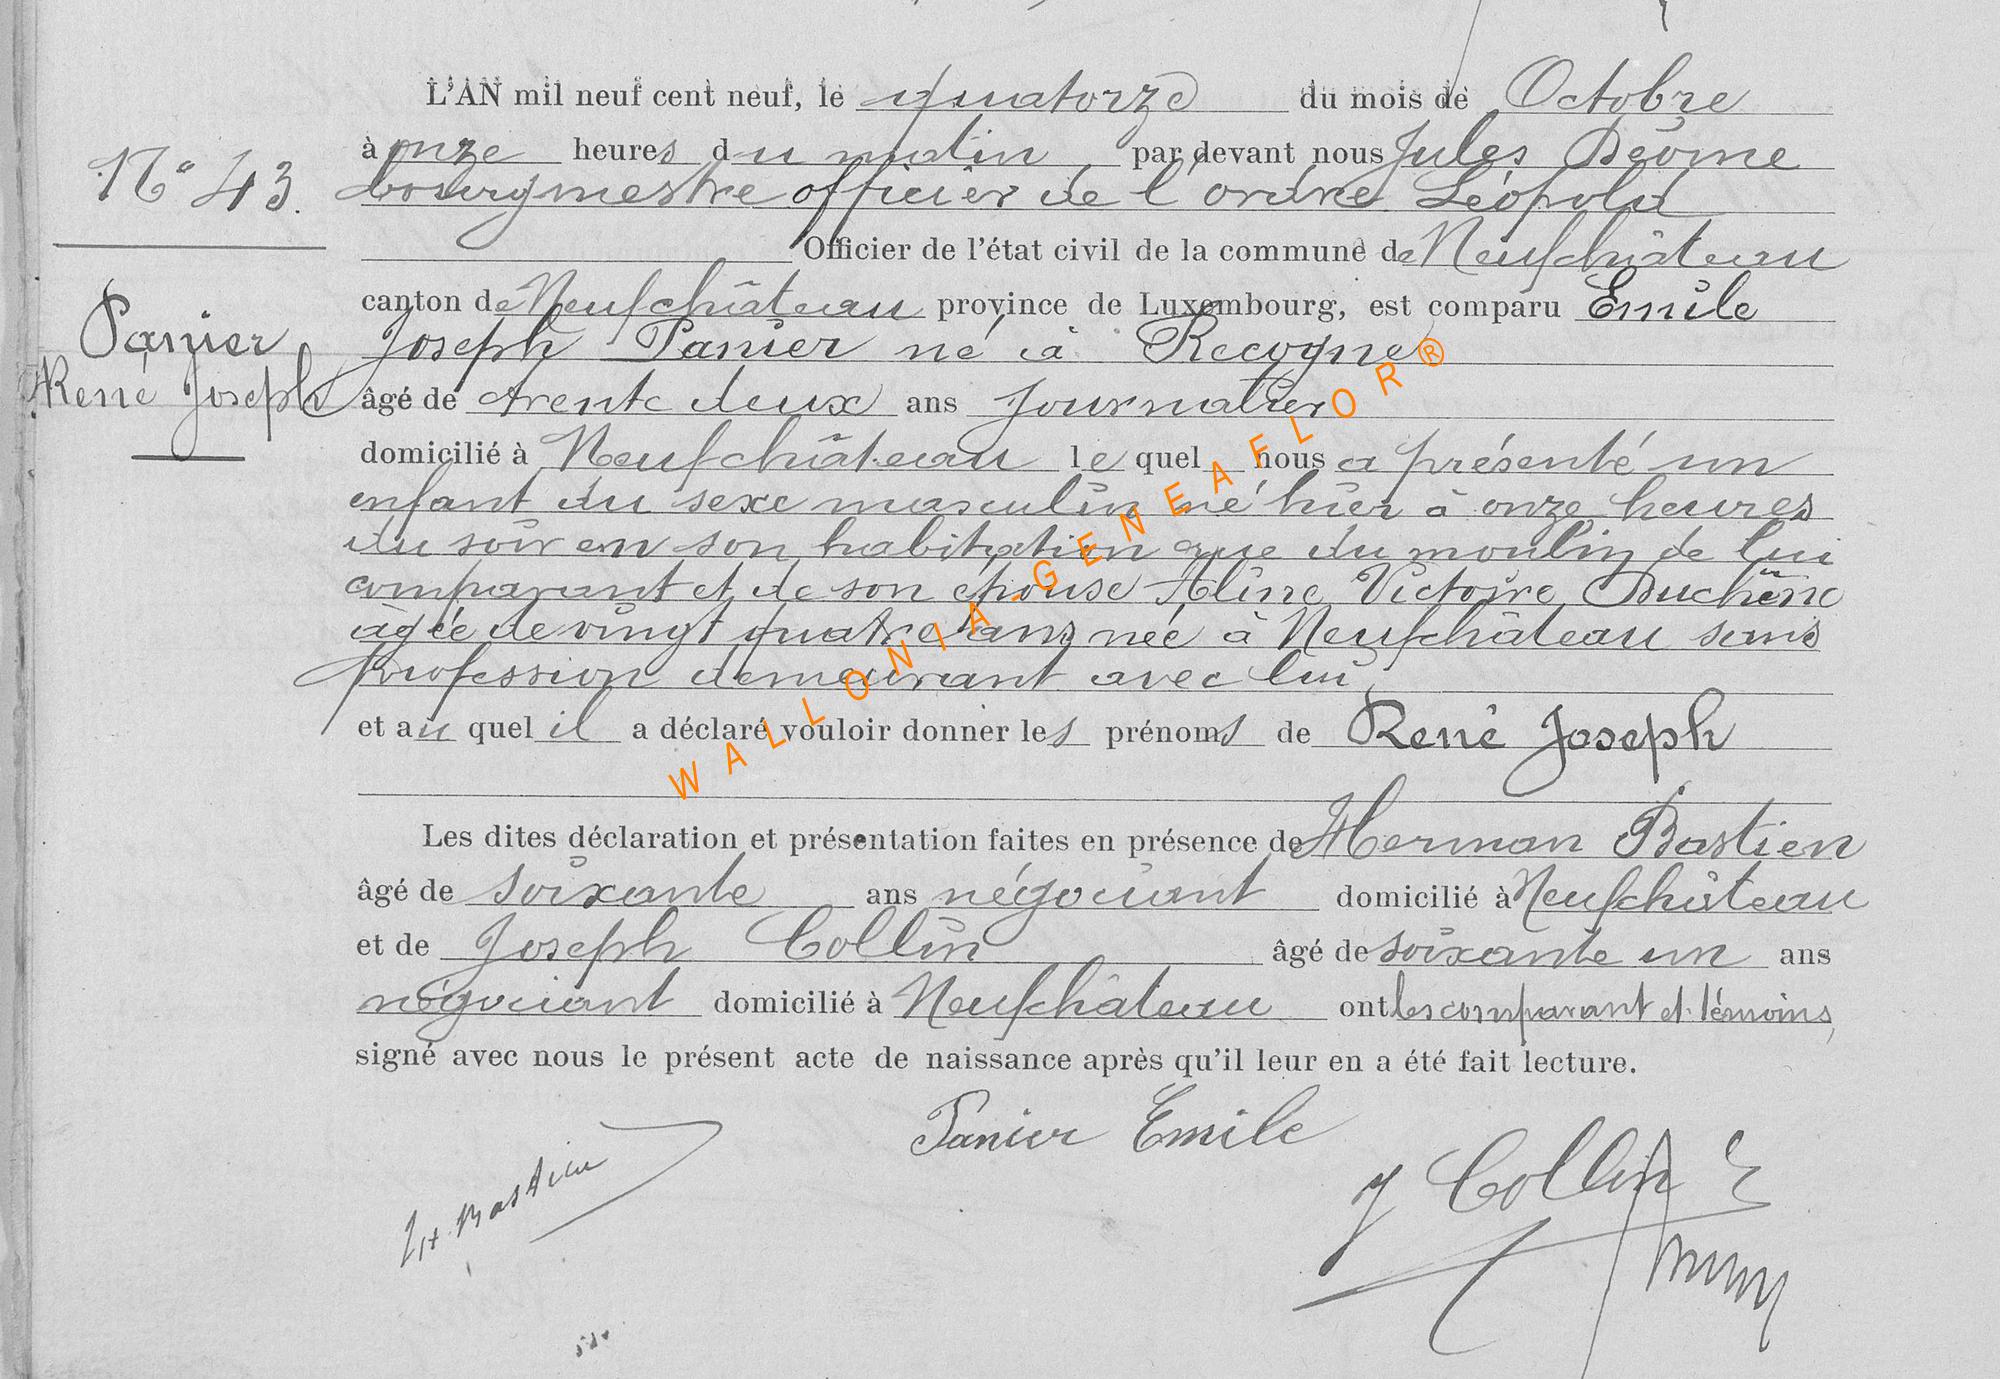 L'AN mil neuf cent neuf, le quatorze du mois de Octobre
à onze heures du matin par devant nous Jules
N° 43.
bourgmestre officier de l'ordre Léopold
Officier de l'état civil de la commune de Neufchâteau
canton de Neufchâteau province de Luxembourg, est comparu Emile
Panier
Joseph Panier né à Recogne
René Joseph
âgé de trente deux ans journalier
domicilié à Neufchâteau lequel nous a présenté un
enfant du sexe masculin né hier à onze heures
du soir en son habitation rue du moulin de lui
comparant et de son épouse Aline Victoire Duchêne
âgée de vingt quatre ans née à Neufchâteau sans
profession demeurant avec lui
et auquel il a déclaré vouloir donner les prénoms de René Joseph
WALLONIA-GENEAFLOR®
Les dites déclaration et présentation faites en présence de Herman Bastien
âgé de soixante ans négociant domicilié à Neufchâteau
et de Joseph Collin âgé de soixante un ans
négociant domicilié à Neufchâteau ont les comparant et témoins,
signé avec nous le présent acte de naissance après qu'il leur en a été fait lecture.
Panier Emile
H. Bastien
J Collin